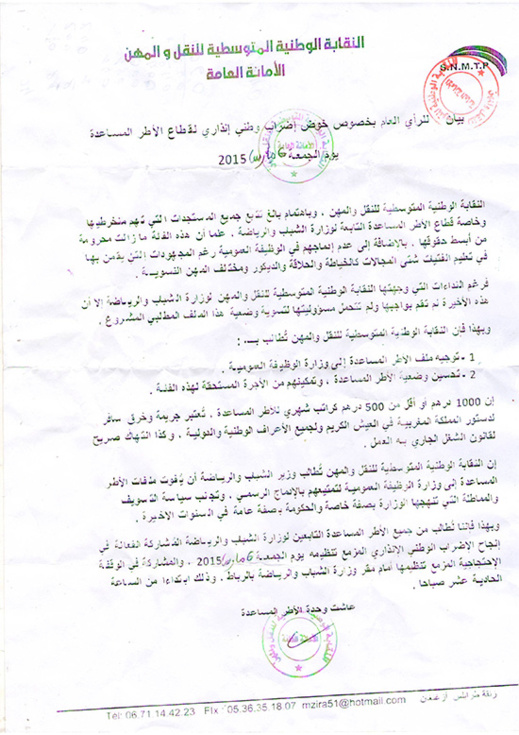 النقابة الوطنية المتوسطية للنقل و المهن
الأمانة العامة
S.N.M.T.P
بيان للرأي العام بخصوص خوض إضراب وطني إنذاري لقطاع الأطر المساعدة
يوم الجمعة 6 مارس 2015
النقابة الوطنية المتوسطية للنقل والمهن ، وباهتمام بالغ تتبع جميع المستجدات التي تهم منخرطيها
وخاصة قطاع الأطر المساعدة التابعة لوزارة الشباب والرياضة . علما أن هذه الفئة ما زالت محرومة
من أبسط حقوقها . بالإضافة إلى عدم إدماجهم في الوظيفة العمومية رغم المجهودات التي يقمن بها
في تعليم الفتيات شتى المجالات كالخياطة والحلاقة والديكور ومختلف المهن النسوية .
فرغم النداءات التي وجهتها النقابة الوطنية المتوسطية للنقل والمهن لوزارة الشباب والرياضة إلا أن
هذه الأخيرة لم تقم بواجبها ولم تتحمل مسؤوليتها لتسوية وضعية هذا الملف المطلبي المشروع .
وبهذا فإن النقابة الوطنية المتوسطية للنقل والمهن تُطالب بـ :
1 - توجيه ملف الأطر المساعدة إلى وزارة الوظيفة العمومية .
2 - تحسين وضعية الأطر المساعدة ، وتمكينهم من الأجرة المستحقة لهذه الفئة .
إن 1000 درهم أو أقل من 500 درهم كراتب شهري للأطر المساعدة . تُعتبر جريمة وخرق سافر
لدستور المملكة المغربية في العيش الكريم ولجميع الأعراف الوطنية والدولية . وكذا انتهاك صريح
لقانون الشغل الجاري به العمل .
إن النقابة الوطنية المتوسطية للنقل والمهن تُطالب وزير الشباب والرياضة أن يُفوت ملفات الأطر
المساعدة إلى وزارة الوظيفة العمومية لتمتيعهم بالإدماج الرسمي . وتجنب سياسة التسويف
والمماطلة التي تنهجها الوزارة بصفة خاصة والحكومة بصفة عامة في السنوات الأخيرة .
وبهذا فإننا نُطالب من جميع الأطر المساعدة التابعين لوزارة الشباب والرياضة المُشاركة الفعالة في
إنجاح الإضراب الوطني الإنذاري المزمع تنظيمه يوم الجمعة 6 مارس 2015 . والمشاركة في الوقفة
الإحتجاجية المزمع تنظيمها أمام مقر وزارة الشباب والرياضة بالرباط . وذلك ابتداءا من الساعة
الحادية عشر صباحا .
عاشت وحدة الأطر المساعدة
Tel: 06.71.14.42.23 Fix : 05.36.35.18.07 mzira51@hotmail.com